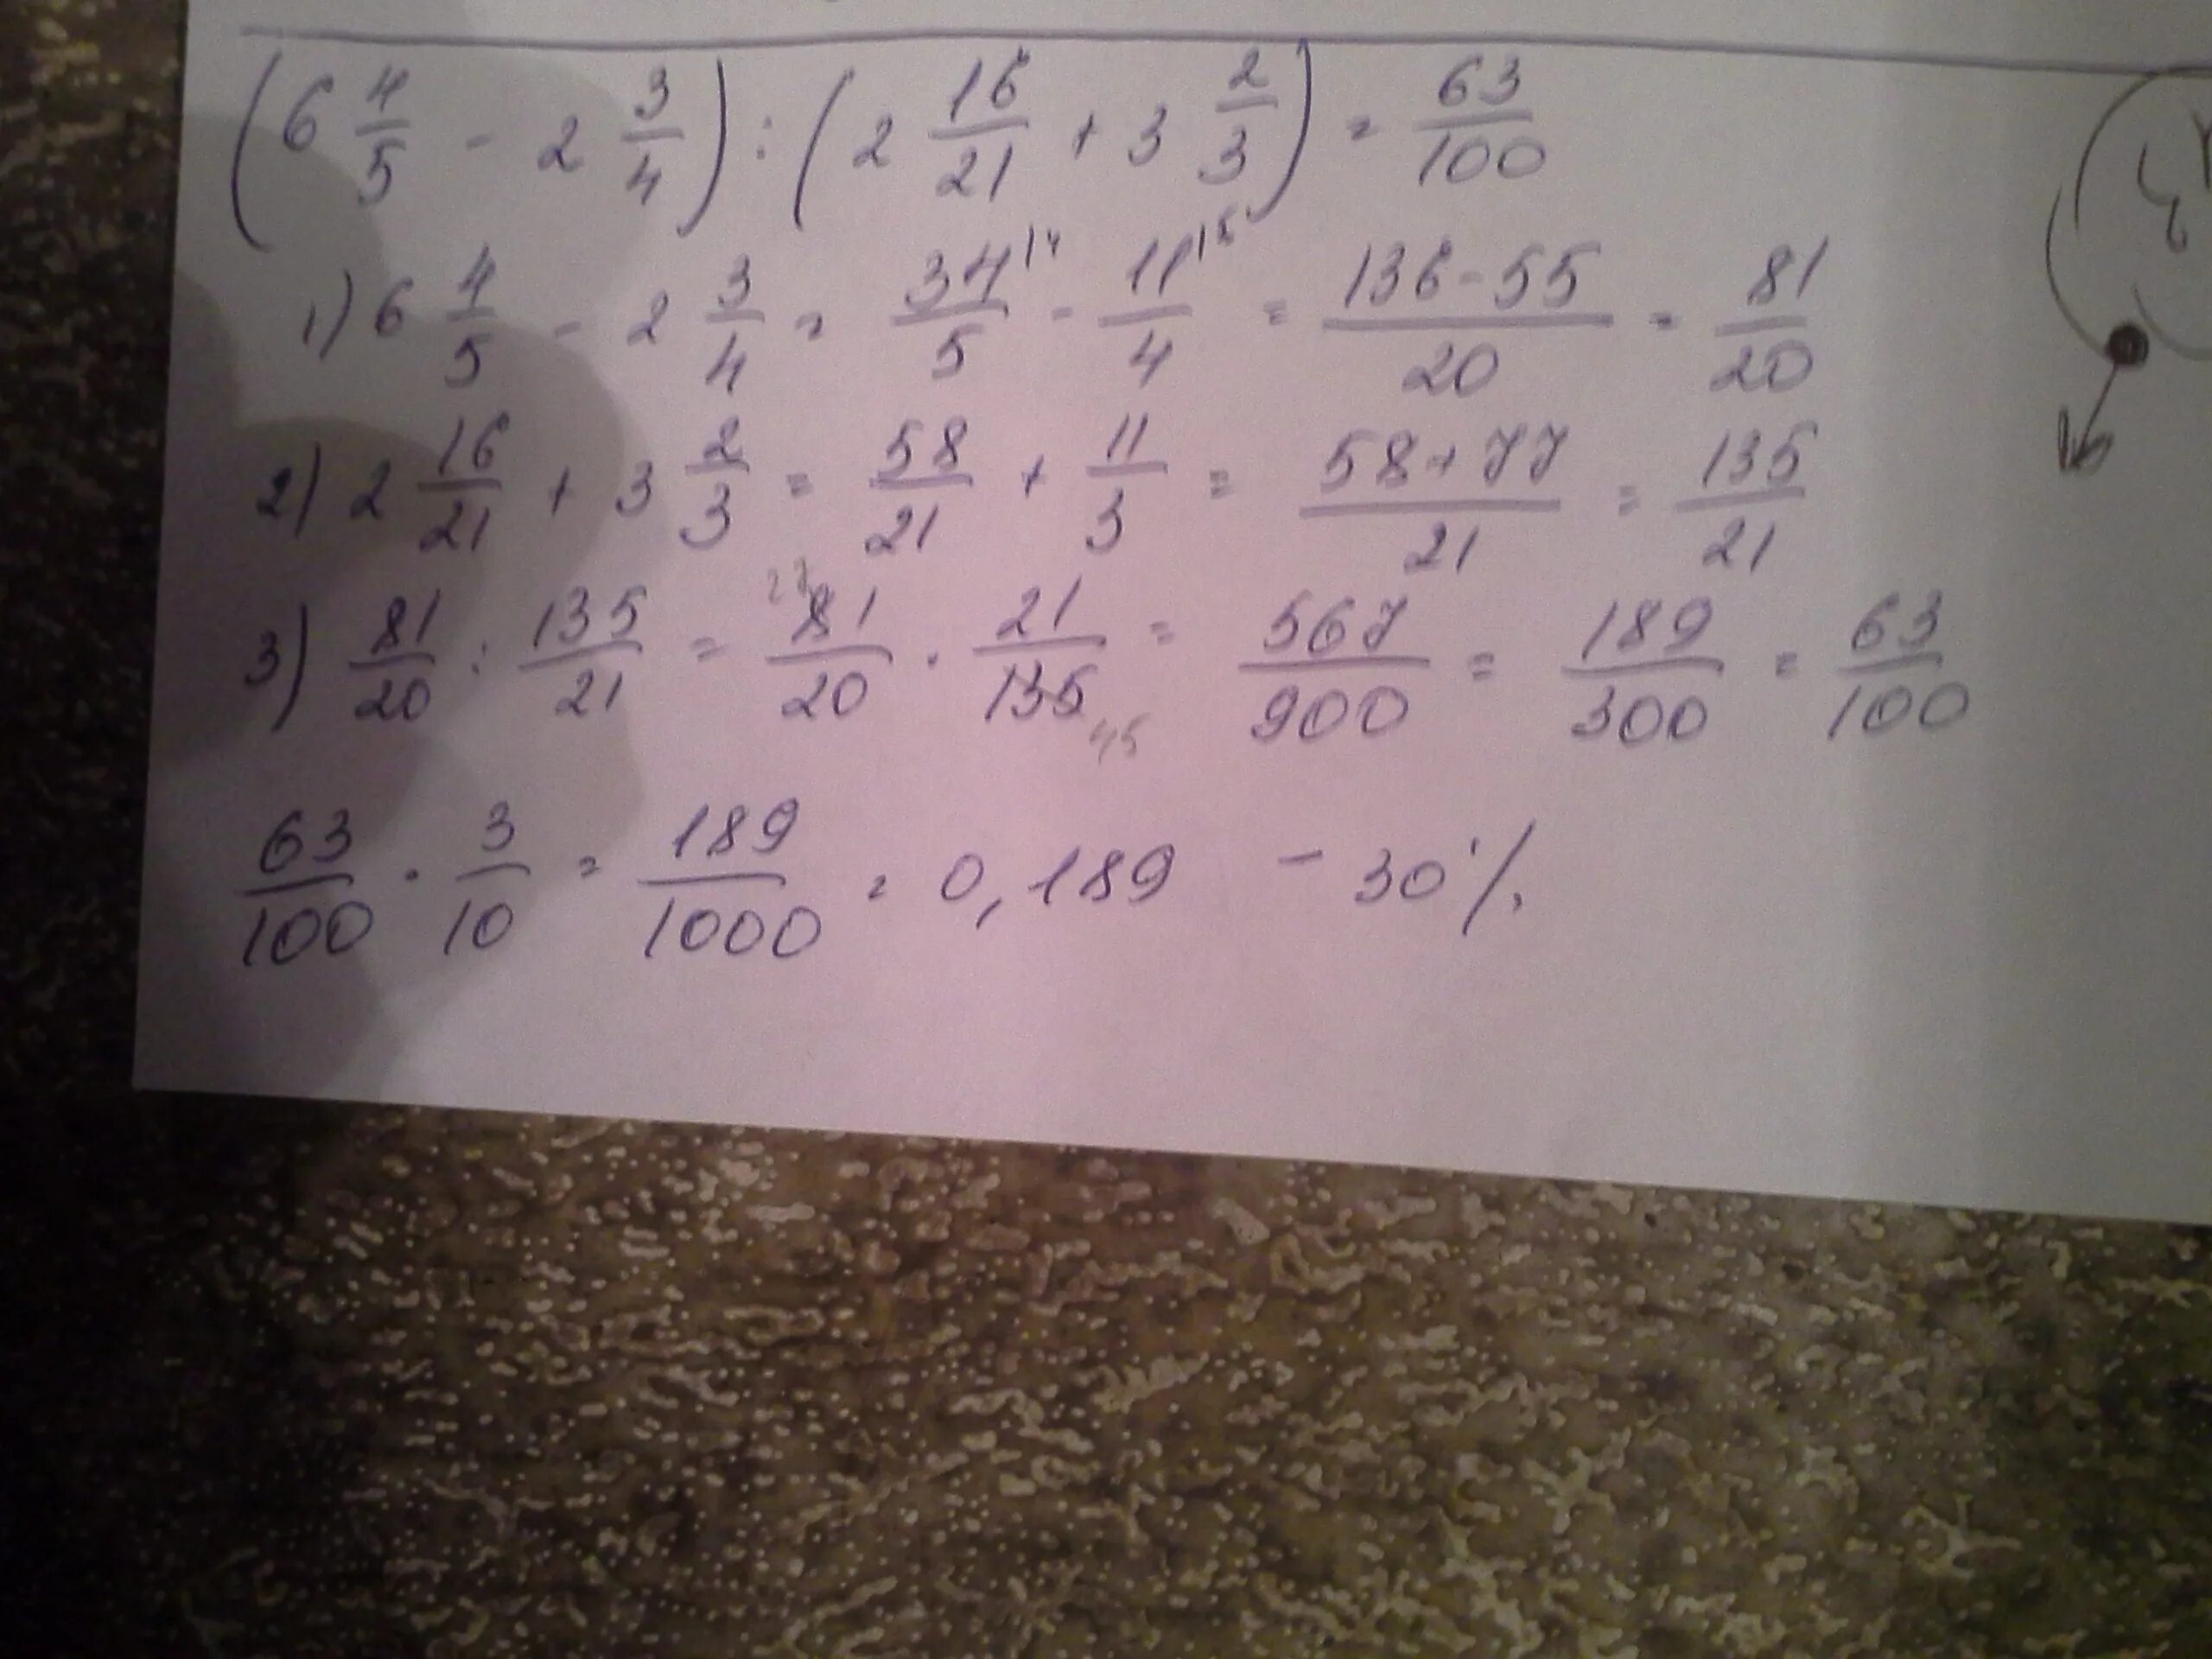 (6 4/5 - 2 3/4) : (2 16/21 + 3 2/3) = 63/100
1) 6 4/5 - 2 3/4 = 34/5 |4 - 11/4 |5 = 136-55/20 = 81/20
2) 2 16/21 + 3 2/3 = 58/21 + 11/3 = 58+77/21 = 135/21
3) 81/20 : 135/21 = 27 81/20 · 21/135 45 = 567/900 = 189/300 = 63/100
63/100 · 3/10 = 189/1000 = 0,189 - 30%